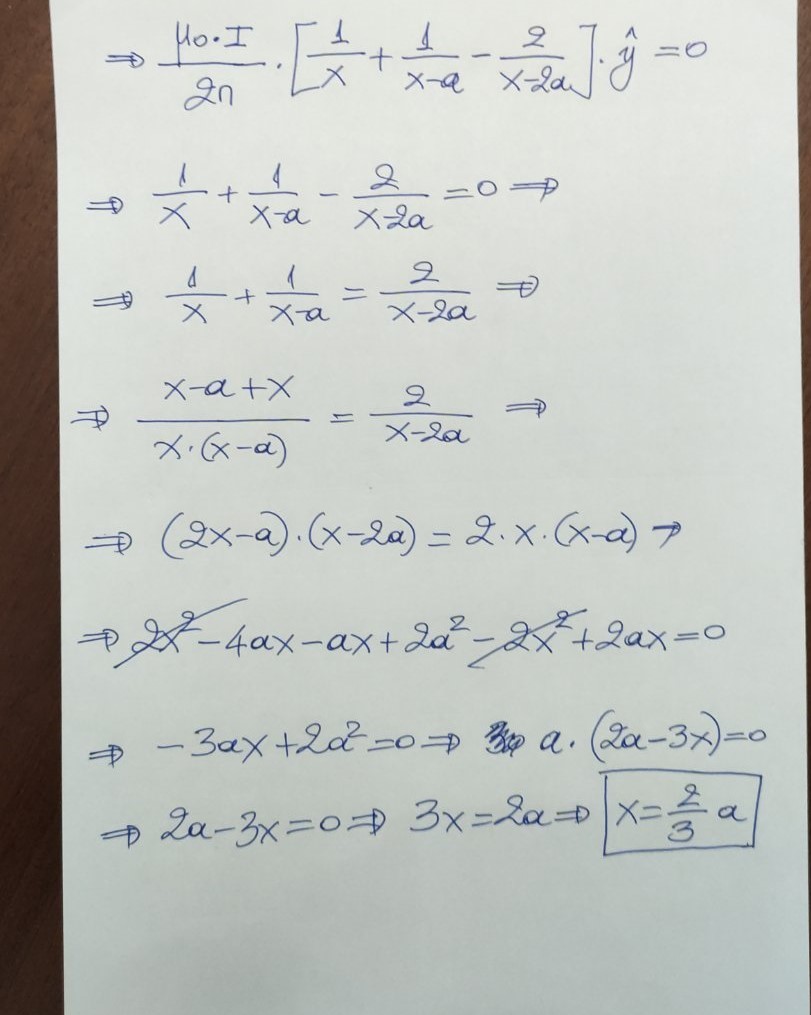 ⇒ μ₀·I/2π · [1/x + 1/(x-a) - 2/(x-2a)] · ŷ = 0
⇒ 1/x + 1/(x-a) - 2/(x-2a) = 0 ⇒
⇒ 1/x + 1/(x-a) = 2/(x-2a) ⇒
⇒ (x-a+x)/(x·(x-a)) = 2/(x-2a) ⇒
⇒ (2x-a)·(x-2a) = 2·x·(x-a) →
⇒ 2x² - 4ax - ax + 2a² - 2x² + 2ax = 0
⇒ -3ax + 2a² = 0 ⇒ a·(2a-3x) = 0
⇒ 2a-3x = 0 ⇒ 3x = 2a ⇒ x = 2/3 a